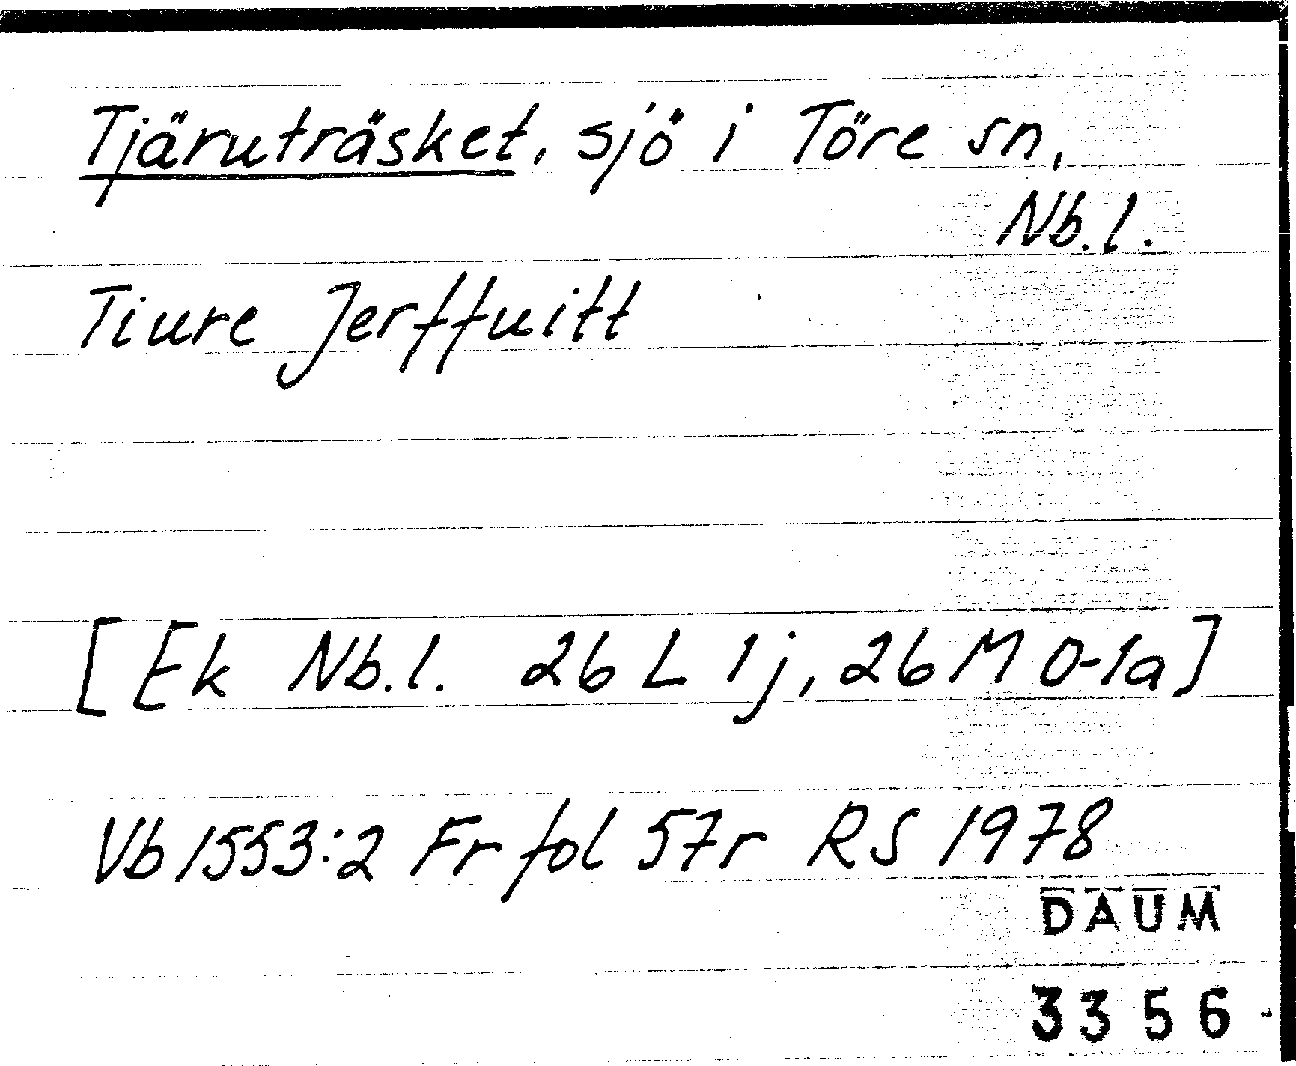 Tjäruträsket, sjö i Töre sn,
Nb.l.
Tiure Jerffuitt
[Ek Nb.l. 26 L 1j, 26 M 0-1a]
Vb 1553:2 Fr fol 57r RS 1978
DAUM
3356